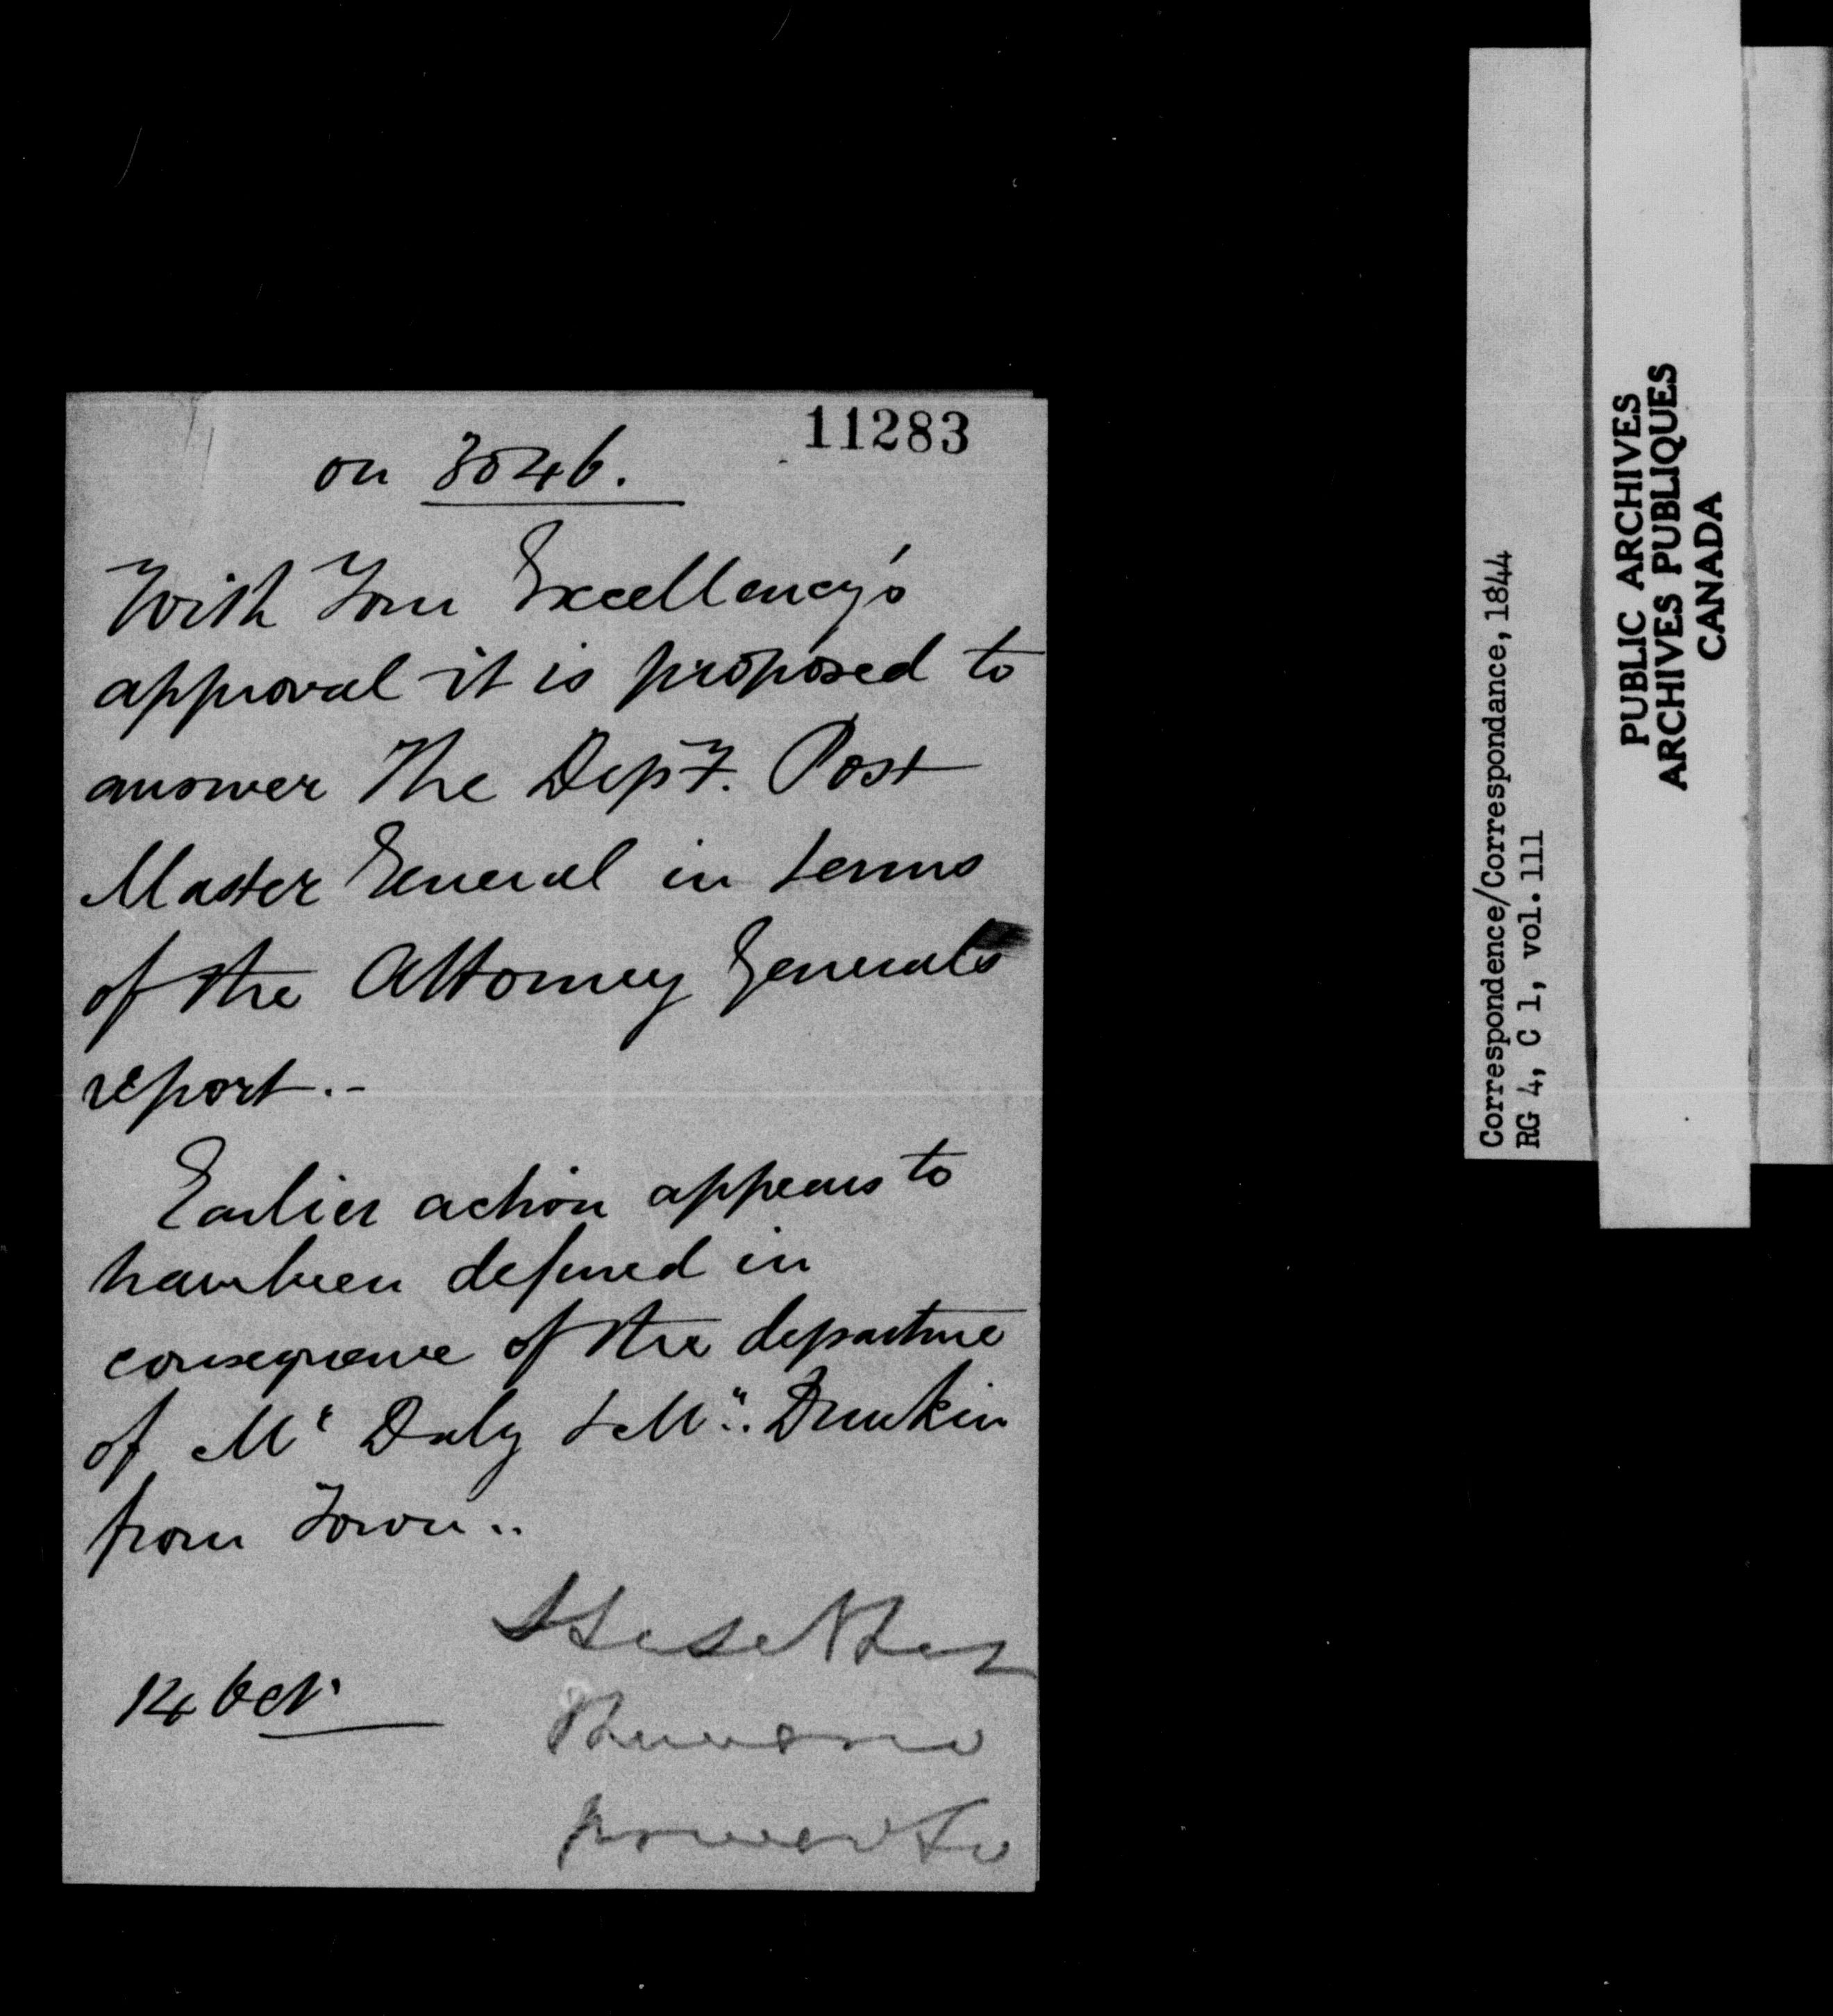 11283
on 3046.
With Your Excellency's
approval it is proposed to
answer The Depy. Post
Master General in terms
of the Attorney Generals
report.-
Earlier action appears to
have been deferred in
consequence of the departure
of Mr Daly & Mr. Dunkin
from Town..
14 Oct.
Correspondence/Correspondance, 1844
RG 4, C 1, vol. 111
PUBLIC ARCHIVES
ARCHIVES PUBLIQUES
CANADA